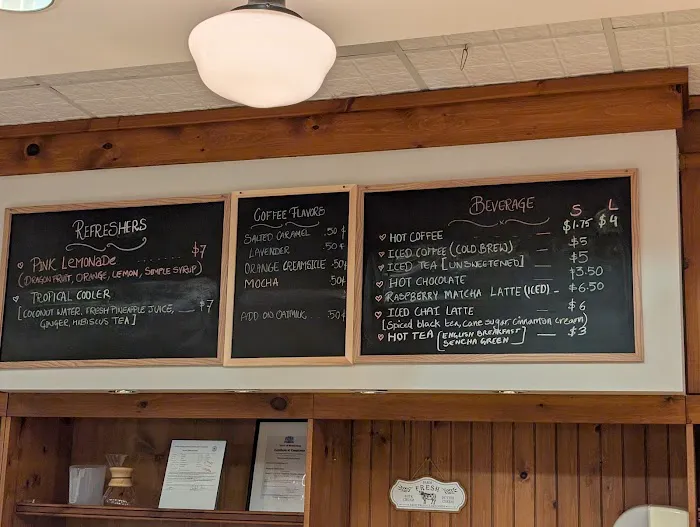 REFRESHERS
PINK LEMONADE ........ $7
(DRAGON FRUIT, ORANGE, LEMON, SIMPLE SYRUP)
TROPICAL COOLER
[COCONUT WATER, FRESH PINEAPPLE JUICE, — $7
GINGER, HIBISCUS TEA]
COFFEE FLAVORS
SALTED CARAMEL .50¢
LAVENDER .50¢
ORANGE CREAMSICLE .50¢
MOCHA 50¢
ADD ON OATMILK... .50¢
BEVERAGE S L
HOT COFFEE — $1.75 $4
ICED COFFEE (COLD BREW) — $5
ICED TEA [UNSWEETENED] — $5
HOT CHOCOLATE — $3.50
RASPBERRY MATCHA LATTE (ICED) — $6.50
ICED CHAI LATTE — $6
[Spiced black tea, cane sugar, cinnamon cream]
HOT TEA [ENGLISH BREAKFAST] — $3
SENCHA GREEN
FRESH